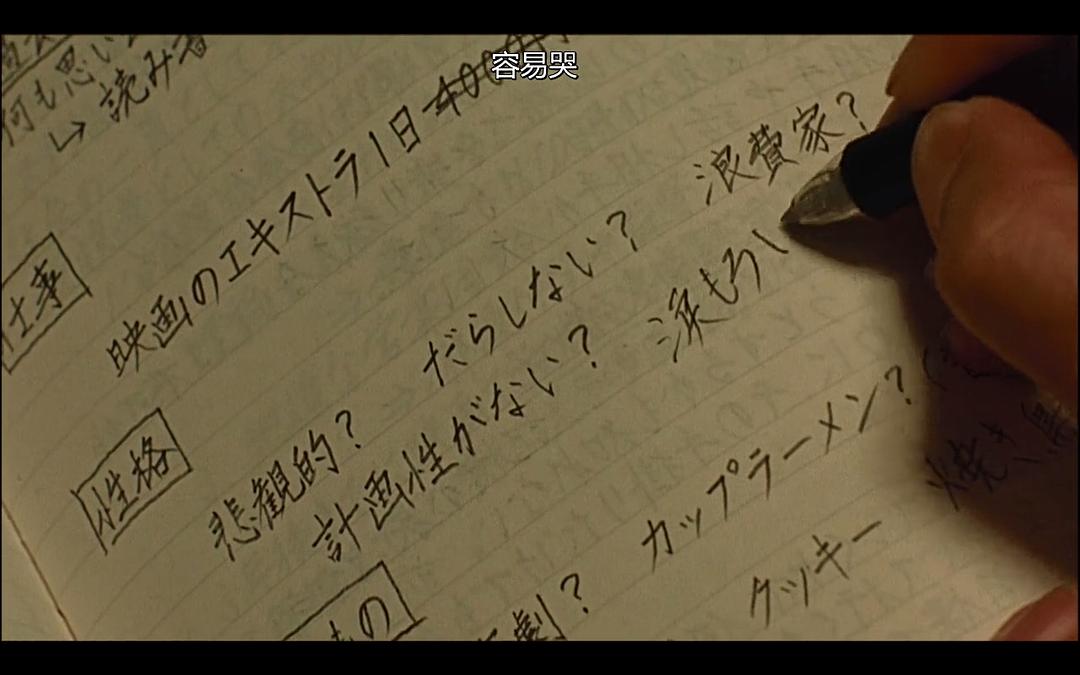 容易哭
何も思い
↳ 読み
仕事
映画のエキストラ1日 400
性格
悲観的? だらしない? 浪費家?
計画性がない? 涙もろい
もの
劇? カップラーメン?
クッキー 焼き